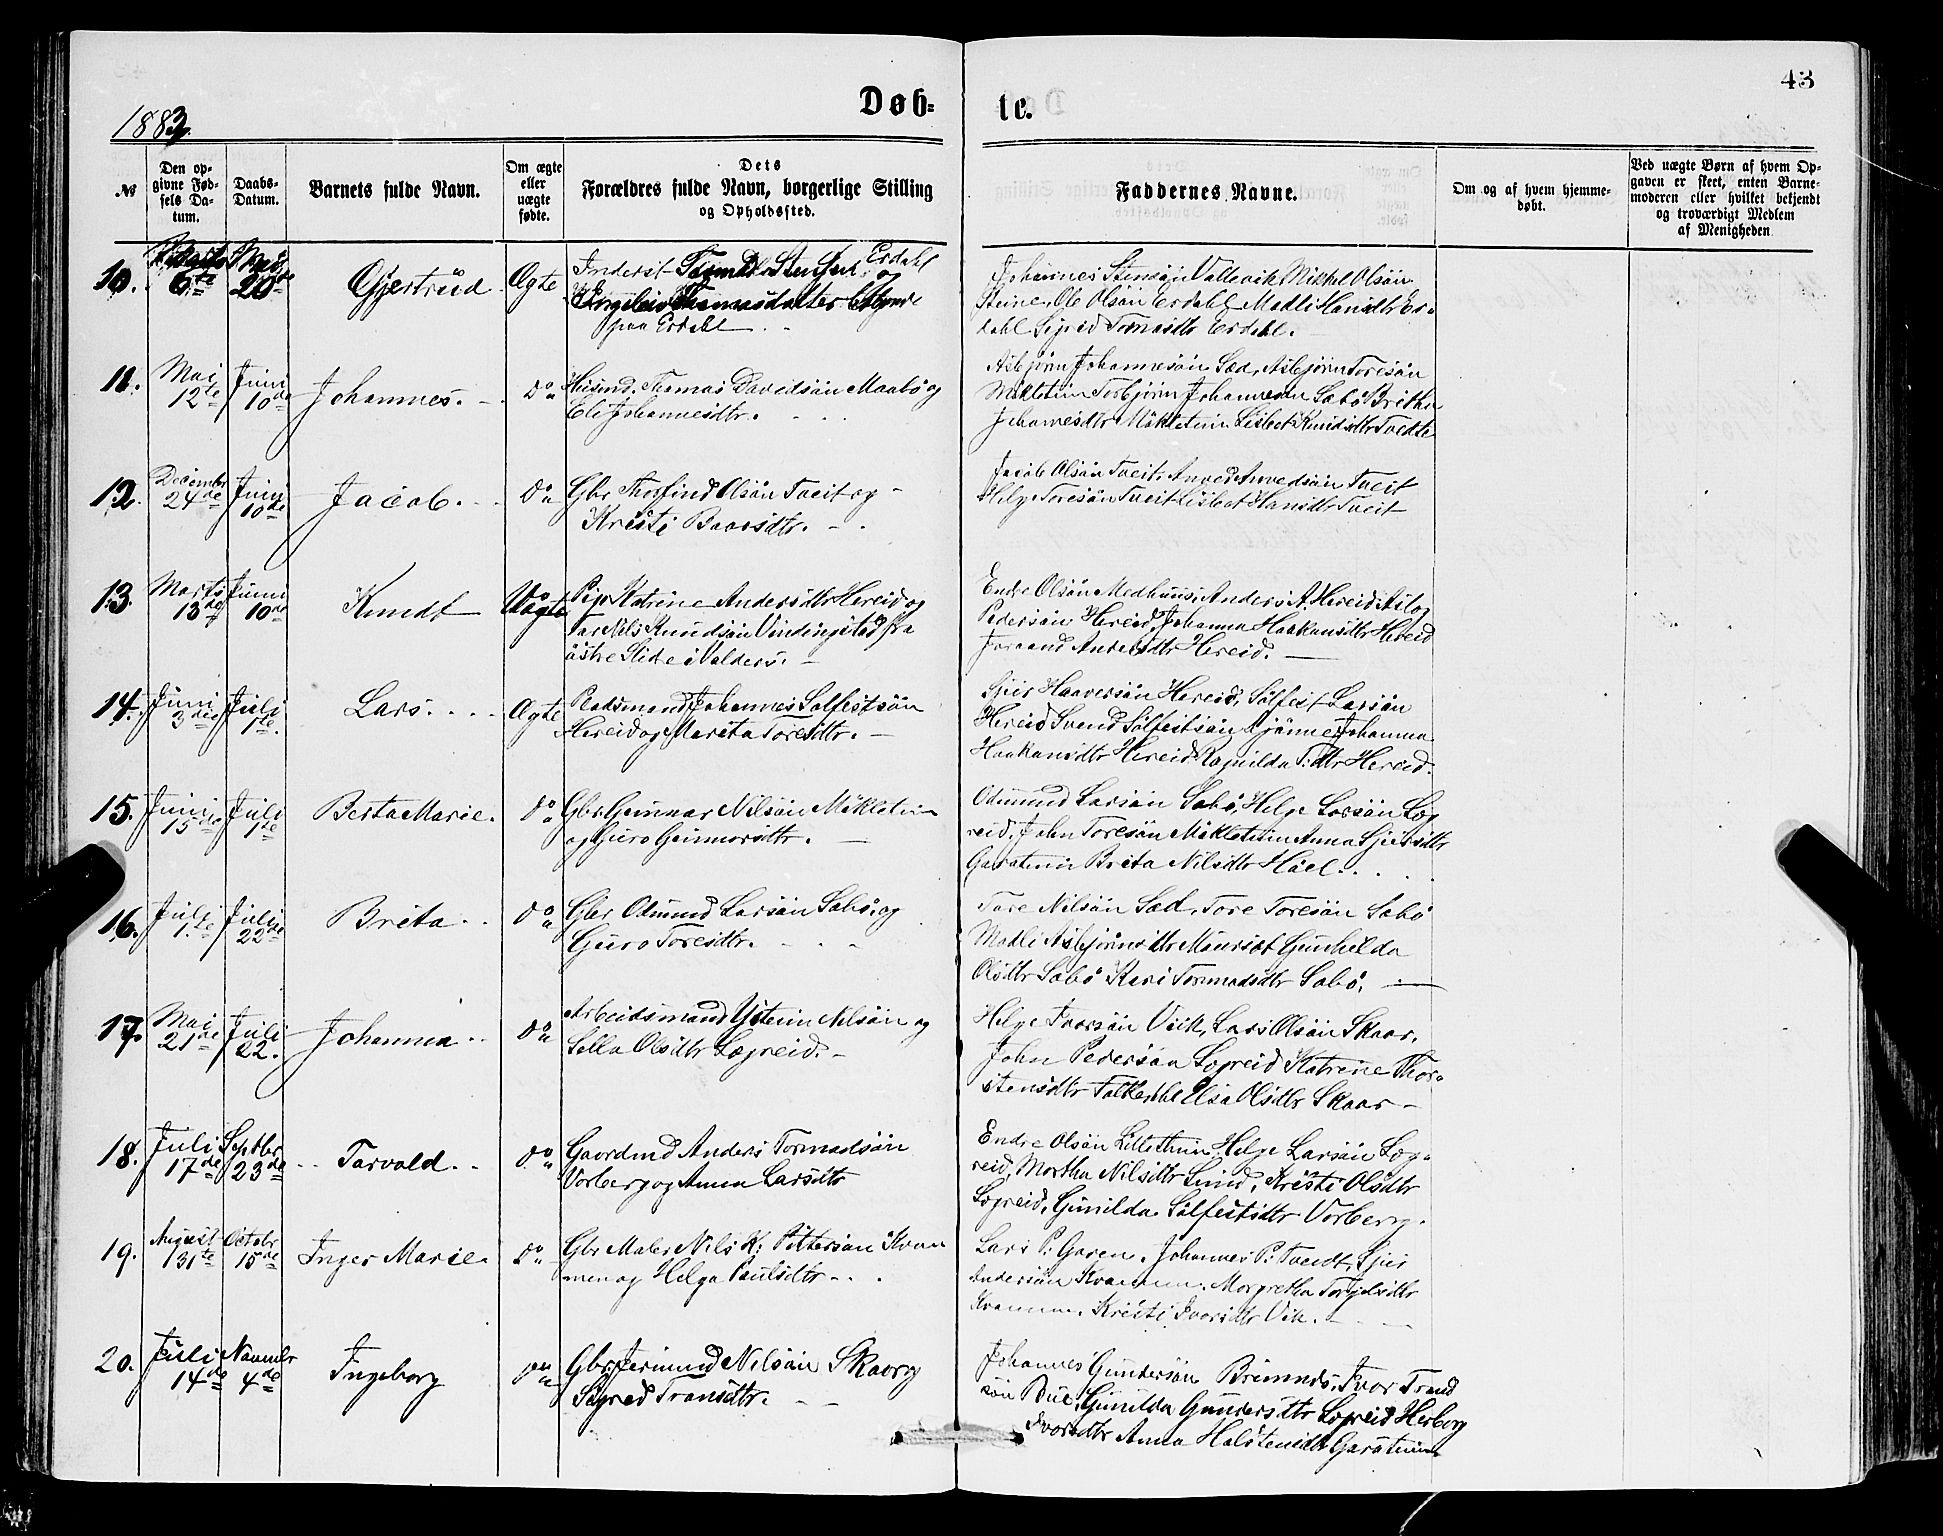 43
1883
Døb-
te.
№
Den op-
givne Fød-
sels Da-
tum.
Daabs-
Datum.
Barnets fulde Navn.
Om ægte
eller
uægte
fødte.
Dets
Forældres fulde Navn, borgerlige Stilling
og Opholdssted.
Faddernes Navne.
Om og af hvem hjemme-
døbt.
Ved uægte Børn af hvem Op-
gaven er skeet, enten Barne-
moderen eller hvilket bekjendt
og troværdigt Medlem
af Menigheden
10. 6te 20de Gjertrüd Ægte
Inderst Stensen Erdahl og
Thomasdatter
paa Erdahl
Johannes Stensøn Vallevik, Mikkel Olsøn
Steine, Ole Olsøn Erdahl Madli Hansdtr Er-
dahl Sigrid Tormodsdtr Erdahl.
11. Mai 12te Juni 10de Johannes. do
Husmd. Thomas Davidsøn Maabø og
Eli Johannesdtr.
Asbjørn Johannesøn Sæd, Asbjørn Toresøn
Mikletun Torbjørn Johannesøn Sæbø Britha
Johannesdtr Mikletun Lisbet Knudsdtr Tvedte
12. December 24de Juni 10de Jacob. do
Gbr Thorfind Olsøn Tveit og
Kristi Baarsdtr.
Jacob Olsøn Tveit, Anved Anvedsøn Tveit
Helge Toresøn Tveit Lisbet Hansdtr Tveit
13. Marts 13de Juni 10de Knudt Uægte
Pige Katrine Andersdtr Hereid og
Far Nils Knudsøn Vindingstad fra
østre Slidre i Valders.
Endre Olsøn Medhuus, Anders A. Hereid Aslog
Pedersøn Hereid, Johanna Haakonsdtr Hereid
Joraand Andersdtr Hereid.
14. Juni 3die Juli 1te. Lars. Ægte
Pladsmand Johannes Solfestsøn
Hereid og Marita Toresdtr.
Sjur Haaversøn Hereid, Sølfest Larsøn
Hereid Svend Sølfestsøn Kjønne, Johanna
Haakonsdtr Hereid Ragnilda T. dtr Hereid.
15. Juni 15de Juli 1te Berta Marie. do
Gbr. Gunnar Nilsøn Mikletun
og Guro Gunnarsdtr.
Odmund Larsøn Sæbø, Helge Larsøn Læg-
reid, John Toresøn Mikletun Anna Sjursdtr
Garatun Brita Nilsdtr Häel.
16. Juli 1.te Juli 22de Brita do
Gbr Odmund Larsøn Sæbø, og
Guro Toresdtr.
Tore Nilsøn Sæd, Tore Toresøn Sæbø
Madli Asbjørnsdtr Maursæt Gunhilda
Olsdtr Sæbø Kari Tormodsdtr Sæbø.
17. Mai 21de Juli 22. Johanna do
Arbeidsmand Ysten Nilsøn og
Sella Olsdtr Lægreid.
Helge Ivarsøn Viik, Lars Olsøn Skaar,
John Pedersøn Lægreid Katrine Thor-
stensdtr Elsa Olsdtr Skaar
18. Juli 17de Septbr 23de Torvald. do
Gaardmd Anders Tormodsøn
Vorberg og Anna Larsdtr
Endre Olsøn Lilletun, Helge Larsøn Læg-
reid, Martha Nilsdtr Lund, Kristi Olsdtr
Lægreid, Gunilda Sølfestsdtr Vorberg.
19. August 31te Octobr 15de Inger Marie. do
Gbr Maler Nils K: Pettersøn Kvam
men og Helga Paulsdtr
Lars P: Garen, Johannes P: Tvedt, Sjur
Andersøn Kvammen, Margretha Torgilsdtr
Kvammen, Kristi Ivarsdtr Vik.
20. Juli 14de Novembr 4de Ingeborg do
Gbr. Jermund Nilsøn Skaar og
Sigrid Transdtr.
Johannes Gundersøn Brimnes, Ivar Trond
søn Bue, Gunilda Gundersdtr Lægreid Herborg
Ivarsdtr Anna Halstensdtr Garatun